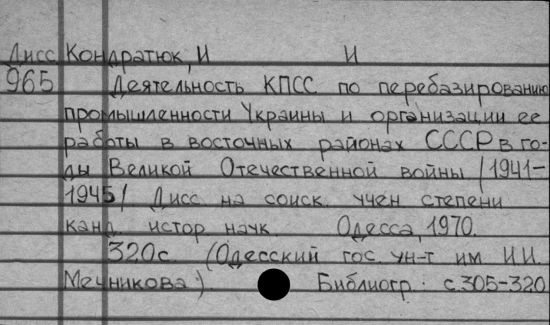 Дисс. Кондратюк, И И
965 Деятельность КПСС по перебазированию
промышленности Украины и организации ее
работы в восточных районах СССР в го-
ды Великой Отечественной войны /1941-
1945/ Дисс. на соиск. учен степени
канд. истор. наук. Одесса, 1970.
320с. (Одесский гос. ун-т им И.И.
Мечникова). Библиогр: с.305-320